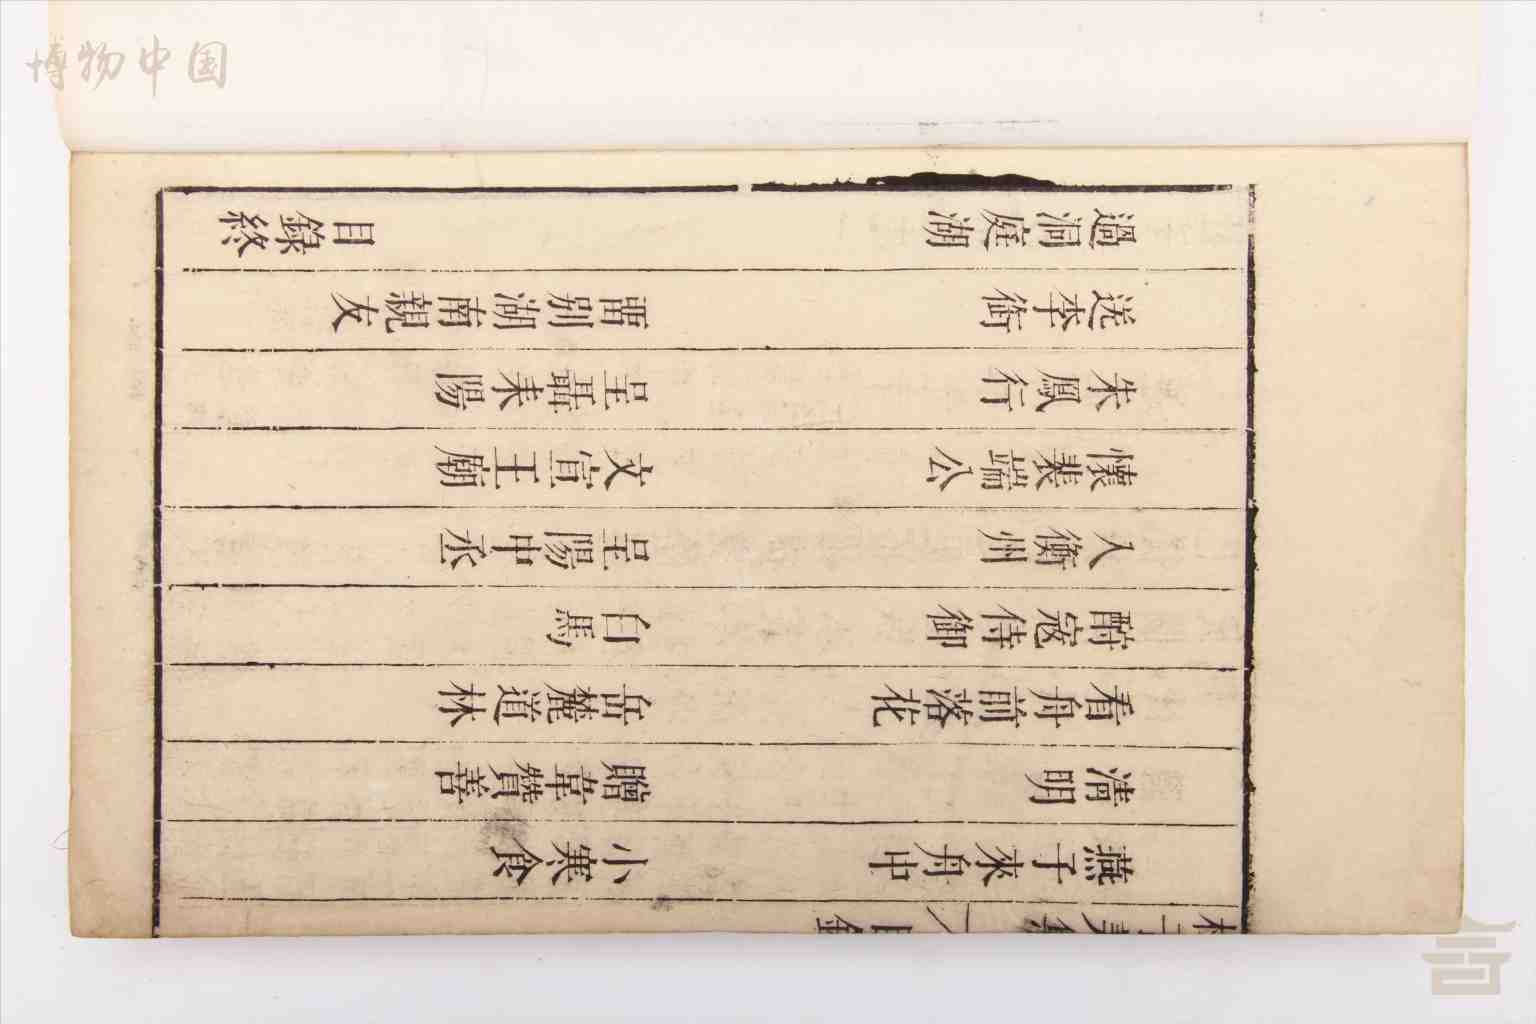 博物中国
燕子來舟中 小寒食
清明 贈韋贊善
看舟前落花 岳麓道林
酧寇侍御 白馬
入衡州 呈陽中丞
懷裴端公 文宣王廟
朱鳳行 呈聶耒陽
送李銜 畱別湖南親友
過洞庭湖
目錄終